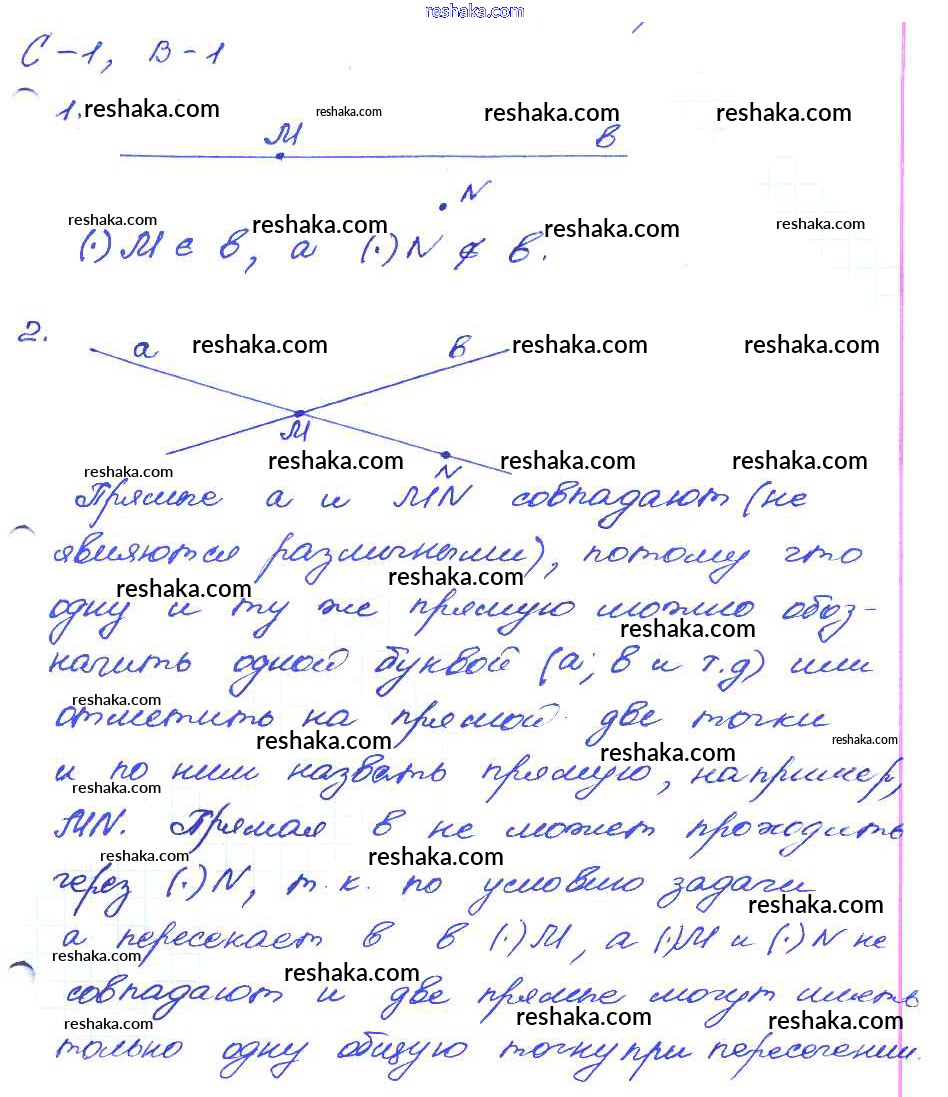 reshaka.com
С-1, В-1
1. reshaka.com reshaka.com reshaka.com reshaka.com
М в
N
reshaka.com reshaka.com reshaka.com reshaka.com
(·) М ∈ в, а (·) N ∉ в.
2.
а reshaka.com в reshaka.com reshaka.com
М
N
reshaka.com reshaka.com reshaka.com reshaka.com
Прямые а и MN совпадают (не
являются различными), потому что
reshaka.com reshaka.com
одну и ту же прямую можно обоз-
reshaka.com
начить одной буквой (а; в и т.д) или
reshaka.com
отметить на прямой две точки
reshaka.com reshaka.com reshaka.com
и по ним назвать прямую, например,
reshaka.com
MN. Прямая в не может проходить
reshaka.com reshaka.com
через (·) N, т.к. по условию задачи
reshaka.com
а пересекает в в (·) М, а (·) М и (·) N не
reshaka.com reshaka.com
совпадают и две прямые могут иметь
reshaka.com reshaka.com reshaka.com
только одну общую точку при пересечении.